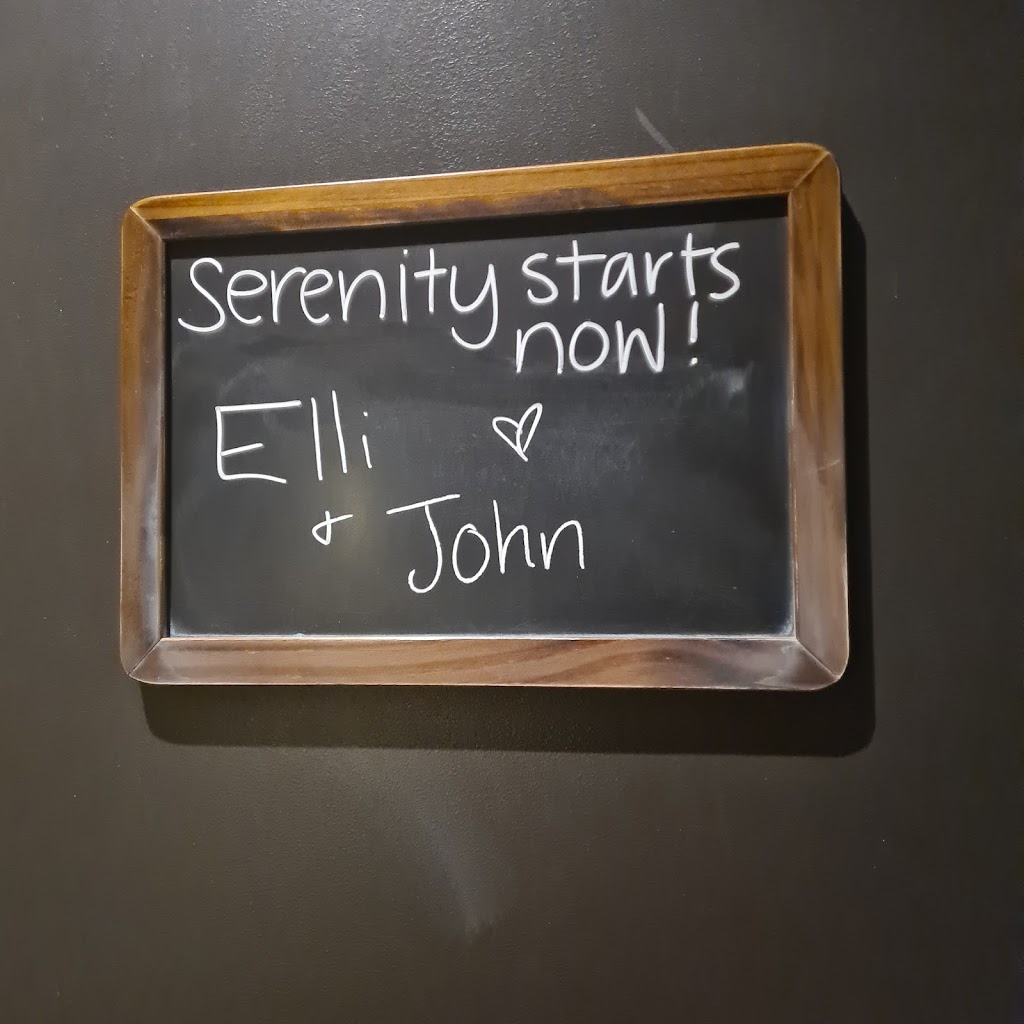 Serenity starts
now!
Elli
& John